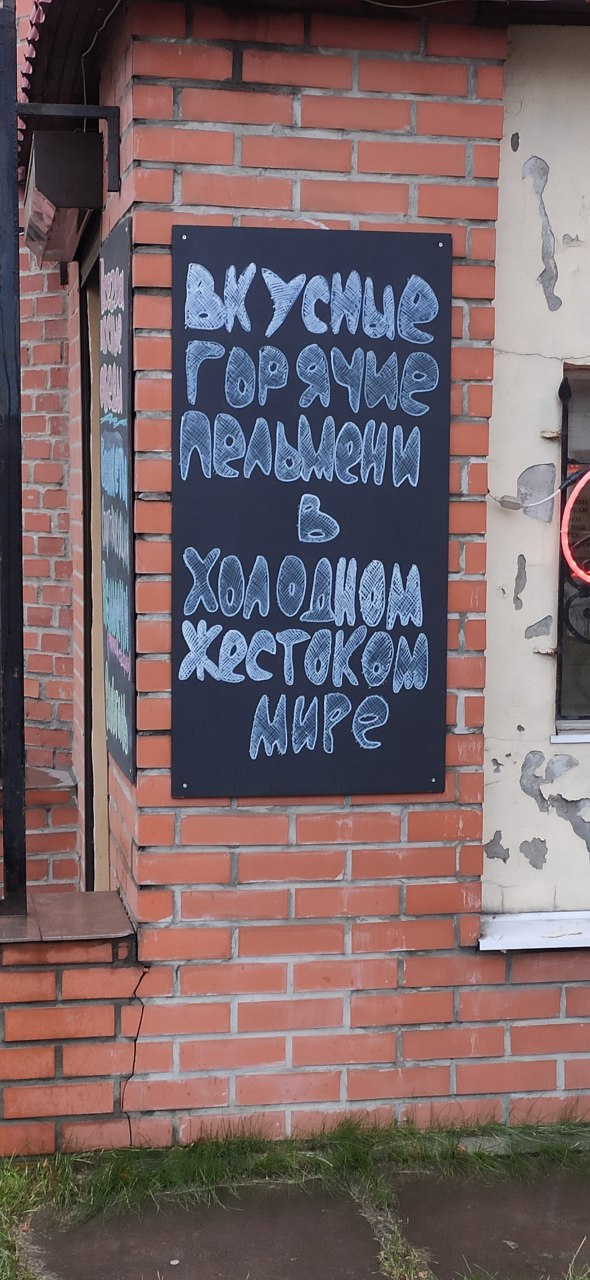 ВКУСНЫЕ
ГОРЯЧИЕ
ПЕЛЬМЕНИ
В
ХОЛОДНОМ
ЖЕСТОКОМ
МИРЕ